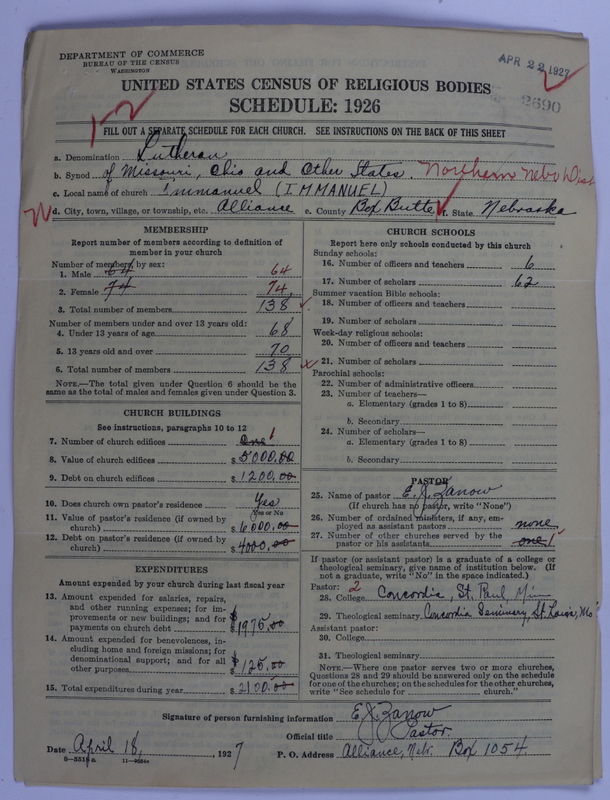 DEPARTMENT OF COMMERCE
BUREAU OF THE CENSUS
WASHINGTON
APR 22 1927
UNITED STATES CENSUS OF RELIGIOUS BODIES
SCHEDULE: 1926
2690
1-2
FILL OUT A SEPARATE SCHEDULE FOR EACH CHURCH. SEE INSTRUCTIONS ON THE BACK OF THIS SHEET
a. Denomination Lutheran
b. Synod of Missouri, Ohio and Other States. Northern Nebr Dist
c. Local name of church Immanuel (IMMANUEL)
d. City, town, village, or township, etc. Alliance e. County Box Butte f. State Nebraska
MEMBERSHIP
Report number of members according to definition of
member in your church
Number of members by sex:
1. Male 64 64
2. Female 74 74
3. Total number of members 138
Number of members under and over 13 years old:
4. Under 13 years of age 68
5. 13 years old and over 70
6. Total number of members 138
NOTE.—The total given under Question 6 should be
same as the total of males and females given under Question 3.
CHURCH BUILDINGS
See instructions, paragraphs 10 to 12
7. Number of church edifices One 1
8. Value of church edifices $5000.00
9. Debt on church edifices $1200.00
10. Does church own pastor's residence Yes
(Yes or No)
11. Value of pastor's residence (if owned by
church) $6000.00
12. Debt on pastor's residence (if owned by
church) $4000.00
EXPENDITURES
Amount expended by your church during last fiscal year
13. Amount expended for salaries, repairs,
and other running expenses; for im-
provements or new buildings; and for
payments on church debt $1975.00
14. Amount expended for benevolences, in-
cluding home and foreign missions; for
denominational support; and for all
other purposes $125.00
15. Total expenditures during year $2100.00
CHURCH SCHOOLS
Report here only schools conducted by this church
Sunday schools:
16. Number of officers and teachers 6
17. Number of scholars 62
Summer vacation Bible schools:
18. Number of officers and teachers
19. Number of scholars
Week-day religious schools:
20. Number of officers and teachers
21. Number of scholars
Parochial schools:
22. Number of administrative officers
23. Number of teachers—
a. Elementary (grades 1 to 8)
b. Secondary
24. Number of scholars—
a. Elementary (grades 1 to 8)
b. Secondary
PASTOR
25. Name of pastor E. J. Zanow
(If church has no pastor, write "None")
26. Number of ordained ministers, if any, em-
ployed as assistant pastor none
27. Number of other churches served by the
pastor or his assistants one 1
If pastor (or assistant pastor) is a graduate of a college or
theological seminary, give name of institution below. (If
not a graduate, write "No" in the space indicated.)
Pastor: 2
28. College Concordia, St. Paul Minn
29. Theological seminary Concordia Seminary, St. Louis, Mo
Assistant pastor:
30. College
31. Theological seminary
NOTE.—Where one pastor serves two or more churches,
Questions 28 and 29 should be answered only on the schedule
for one of the churches; on the schedules for the other churches,
write "See schedule for church."
Signature of person furnishing information E. J. Zanow
Official title Pastor
Date April 18, 1927 P. O. Address Alliance, Nebr. Box 1054.
11—9584